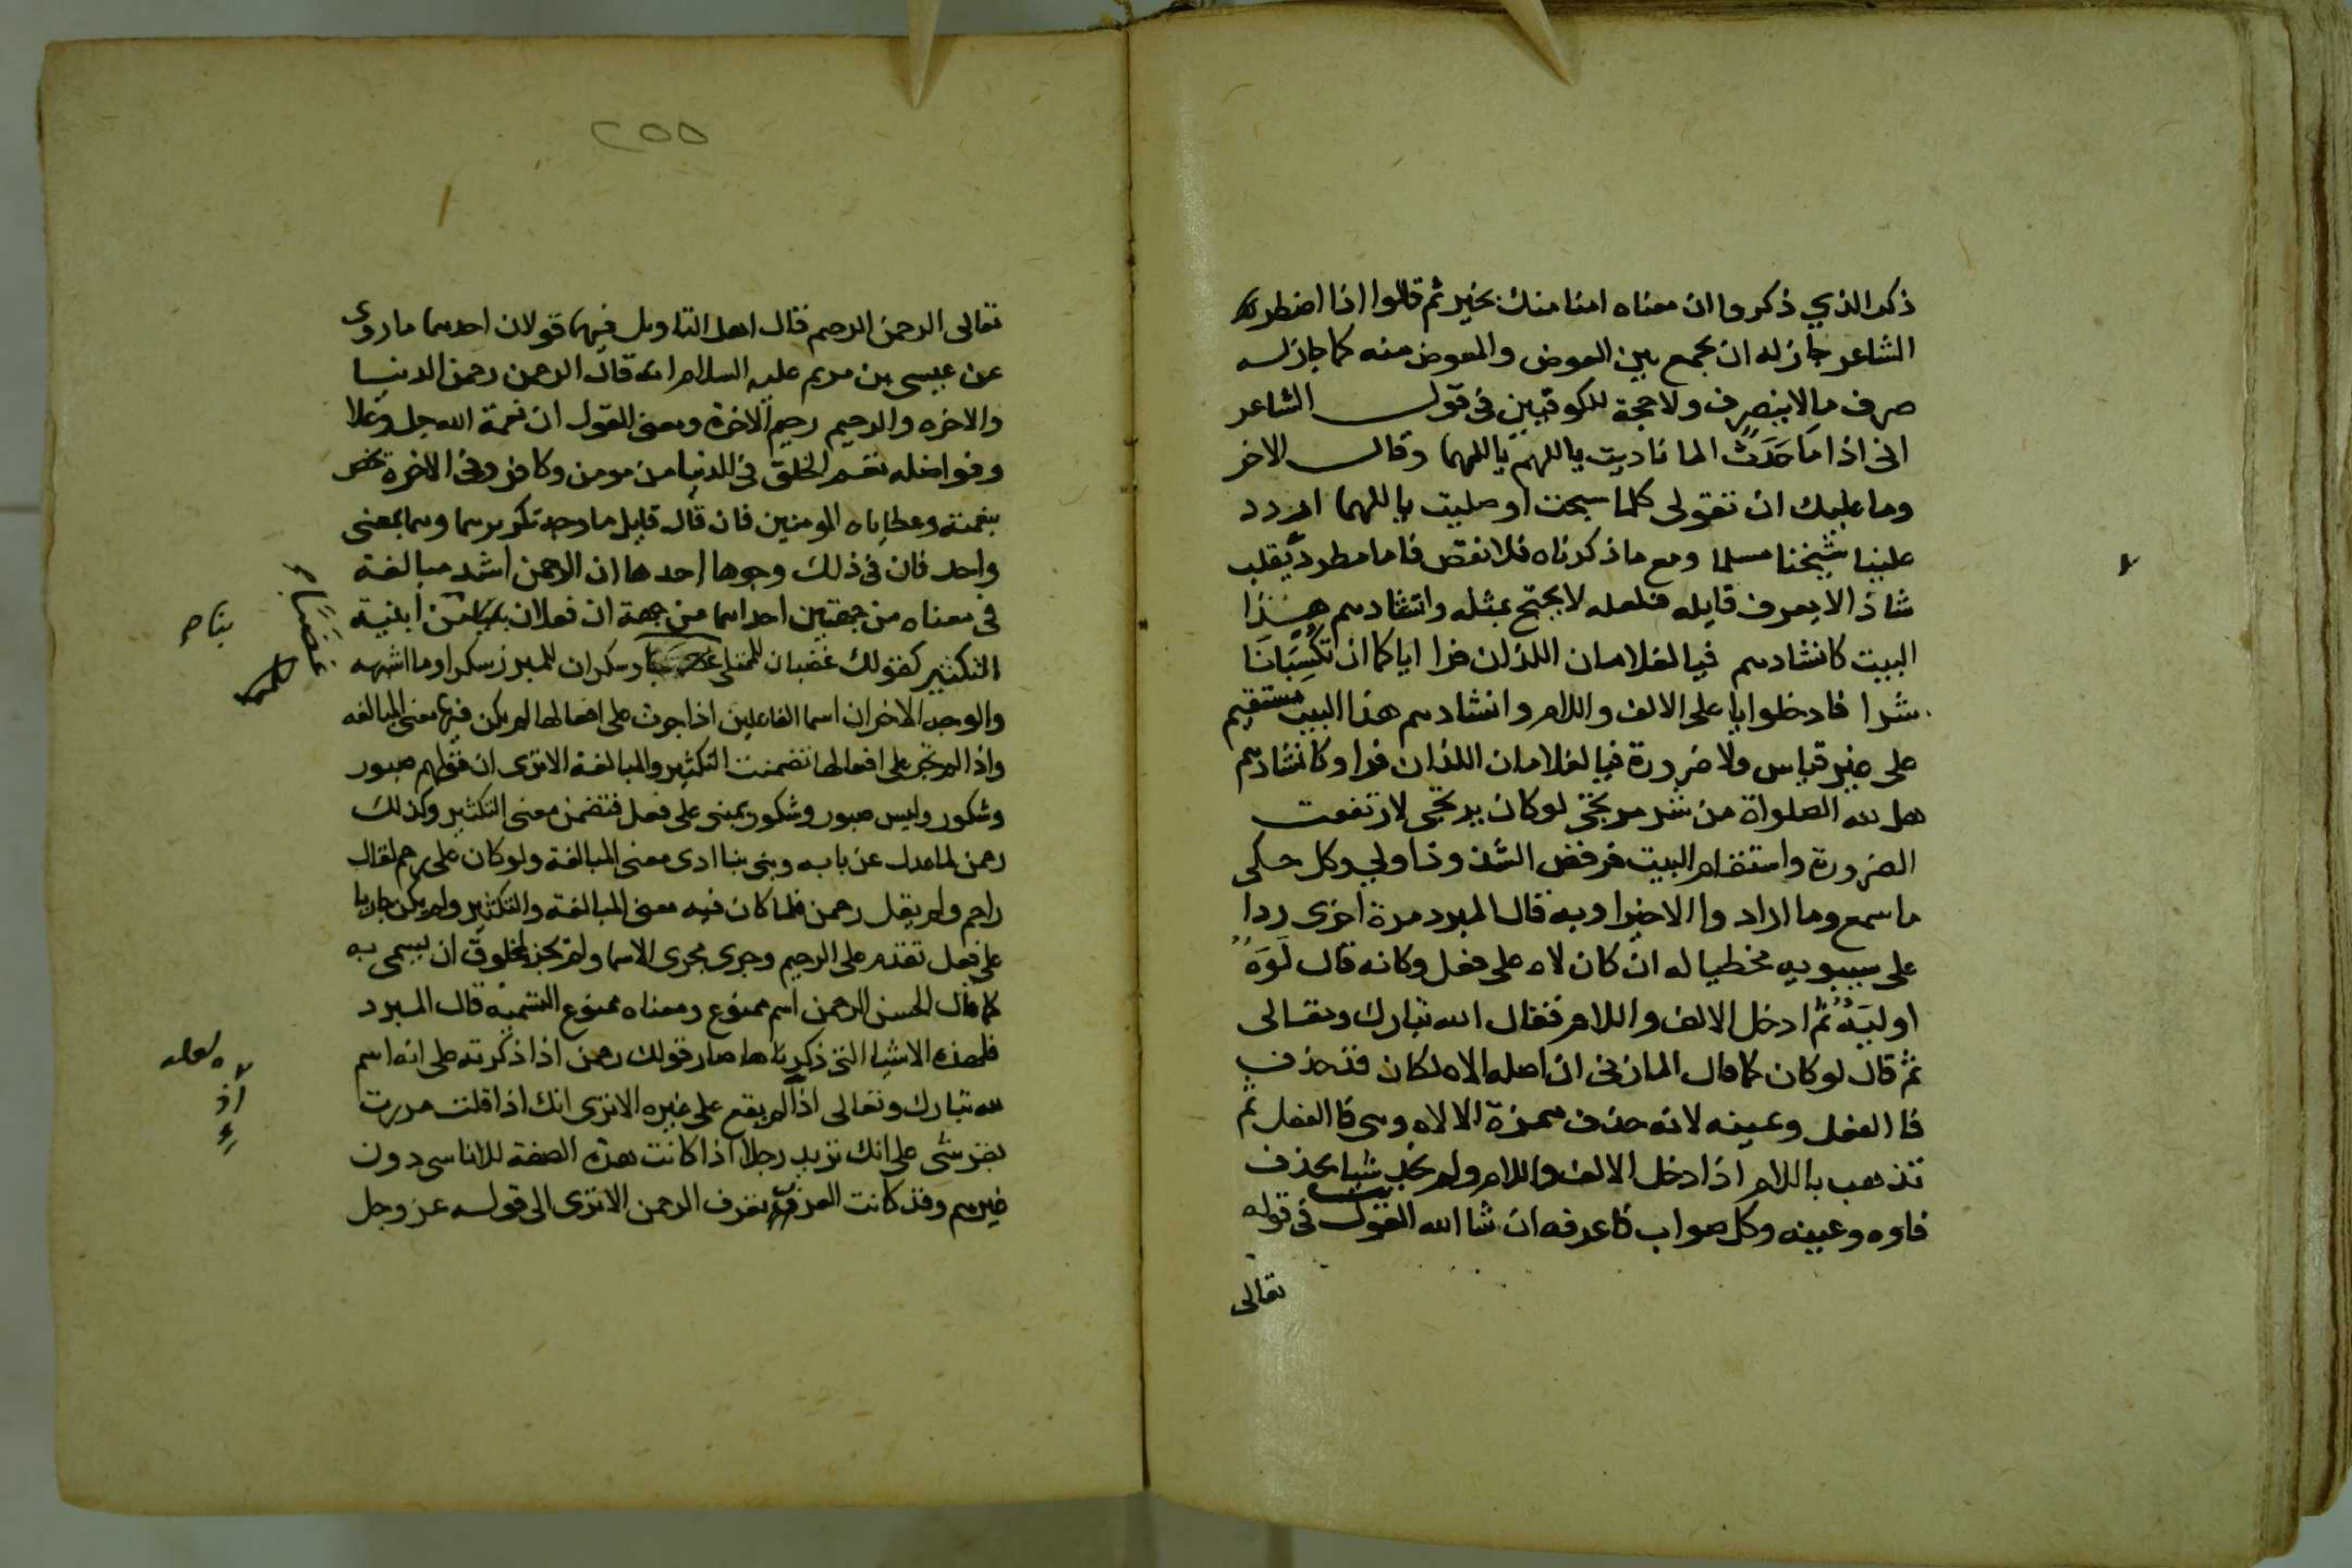 ذكر الذي ذكروا ان معناه امنا منك بخير ثم قالوا اذا اضطر
الشاعر جاز له ان يجمع بين العوض والمعوض منه كما جاز له
صرف ما لا ينصرف ولا حجة للكوفيين في قول الشاعر
اني اذا ما حَدَثٌ الما ناديت يا اللهم يا اللهما وقال الاخر
وما عليك ان تقولي كلما سبحت او صليت يا اللهما اردد
علينا شيخنا مسلما ومع ما ذكرناه فلا نقص فاما مطرد
شاذ الا يعرف قايله فلعله لا يحتج بمثله وانشادهم هذا
البيت كانشادهم فيا الغلامان اللذان فرا اياكما ان تُكْسِبَانَا
شرا فادخلوا يا على الالف واللام وانشادهم هذا البيت مستقيم
على غير قياس ولا ضرورة فيا لغلامان اللذان فرا وكانشادهم
الضرورة واستقام البيت فرفض الشذوذ اولي وكل حكى
ما سمع وما اراد وا الا خيرا وبه قال المبرد مرة اخرى ردا
على سيبويه مخطيا له ان كان لاه على فعل وكانه قال لَوَهٌ
او ليَهٌ ثم ادخل الالف واللام فقال الله تبارك وتعالى
ثم قال لو كان كما قال المازني ان اصله الاه لكان قد حذف
فا الفعل وعينه لانه حذف همزة الالاه وهي فا الفعل ثم
تذهب باللام اذا دخل الالف واللام ولم نجد شيا يحذف
فاوه وعينه وكل صواب فاعرفه ان شا الله القول في قوله
تعالى
٢٥٥
تعالى الرحمن الرحيم قال اهل التاويل فيهما قولان احدهما ما روى
عن عيسى بن مريم عليه السلام انه قال الرحمن رحمن الدنيا
والاخره والرحيم رحيم الاخرة ومعنى القول ان نعمة الله جل وعلا
وفواضله تعم الخلق في الدنيا من مومن وكافر وفي الاخرة تخص
بنعمته وعطاياه المومنين فان قال قايل ما وجه تكريرهما وهما بمعنى
واحد فان في ذلك وجوها احدها ان الرحمن اشد مبالغة
في معناه من جهتين احداهما من جهة ان فعلان من ابنية
التكثير كقولك غضبان للممتلي غضبا وسكران للمبرز سكرا وما اشبهه
والوجه الاخر ان اسما الفاعلين اذا جرت على افعالها لم يكن فيها معنى المبالغه
واذا لم تجر على افعالها تضمنت التكثير والمبالغة الا ترى ان قولهم صبور
وشكور وليس صبور وشكور بمبنى على فعل فتضمن معنى التكثير وكذلك
رحمن لما عدل عن بابه وبنى بنا ادى معنى المبالغة ولو كان على رحم لقال
راحم ولم يقل رحمن فلما كان فيه معنى المبالغة والتكثير ولم يكن جاريا
على فعل تقدم على الرحيم وجرى مجرى الاسما ولم يجز لمخلوق ان يسمى به
كما قال الحسن الرحمن اسم ممنوع ومعناه ممنوع التسمية قال المبرد
فلهذه الاشيا التي ذكرناها صار قولك رحمن اذا ذكرته على انه اسم
لله تبارك وتعالى اذا لم يقع على غيره الا ترى انك اذا قلت مررت
بقرشى على انك تريد رجلا اذا كانت هذه الصفة للاناسي دون
غيرهم وقد كانت العرب تعرف الرحمن الا ترى الى قوله عز وجل
بناء
لعله
اذ